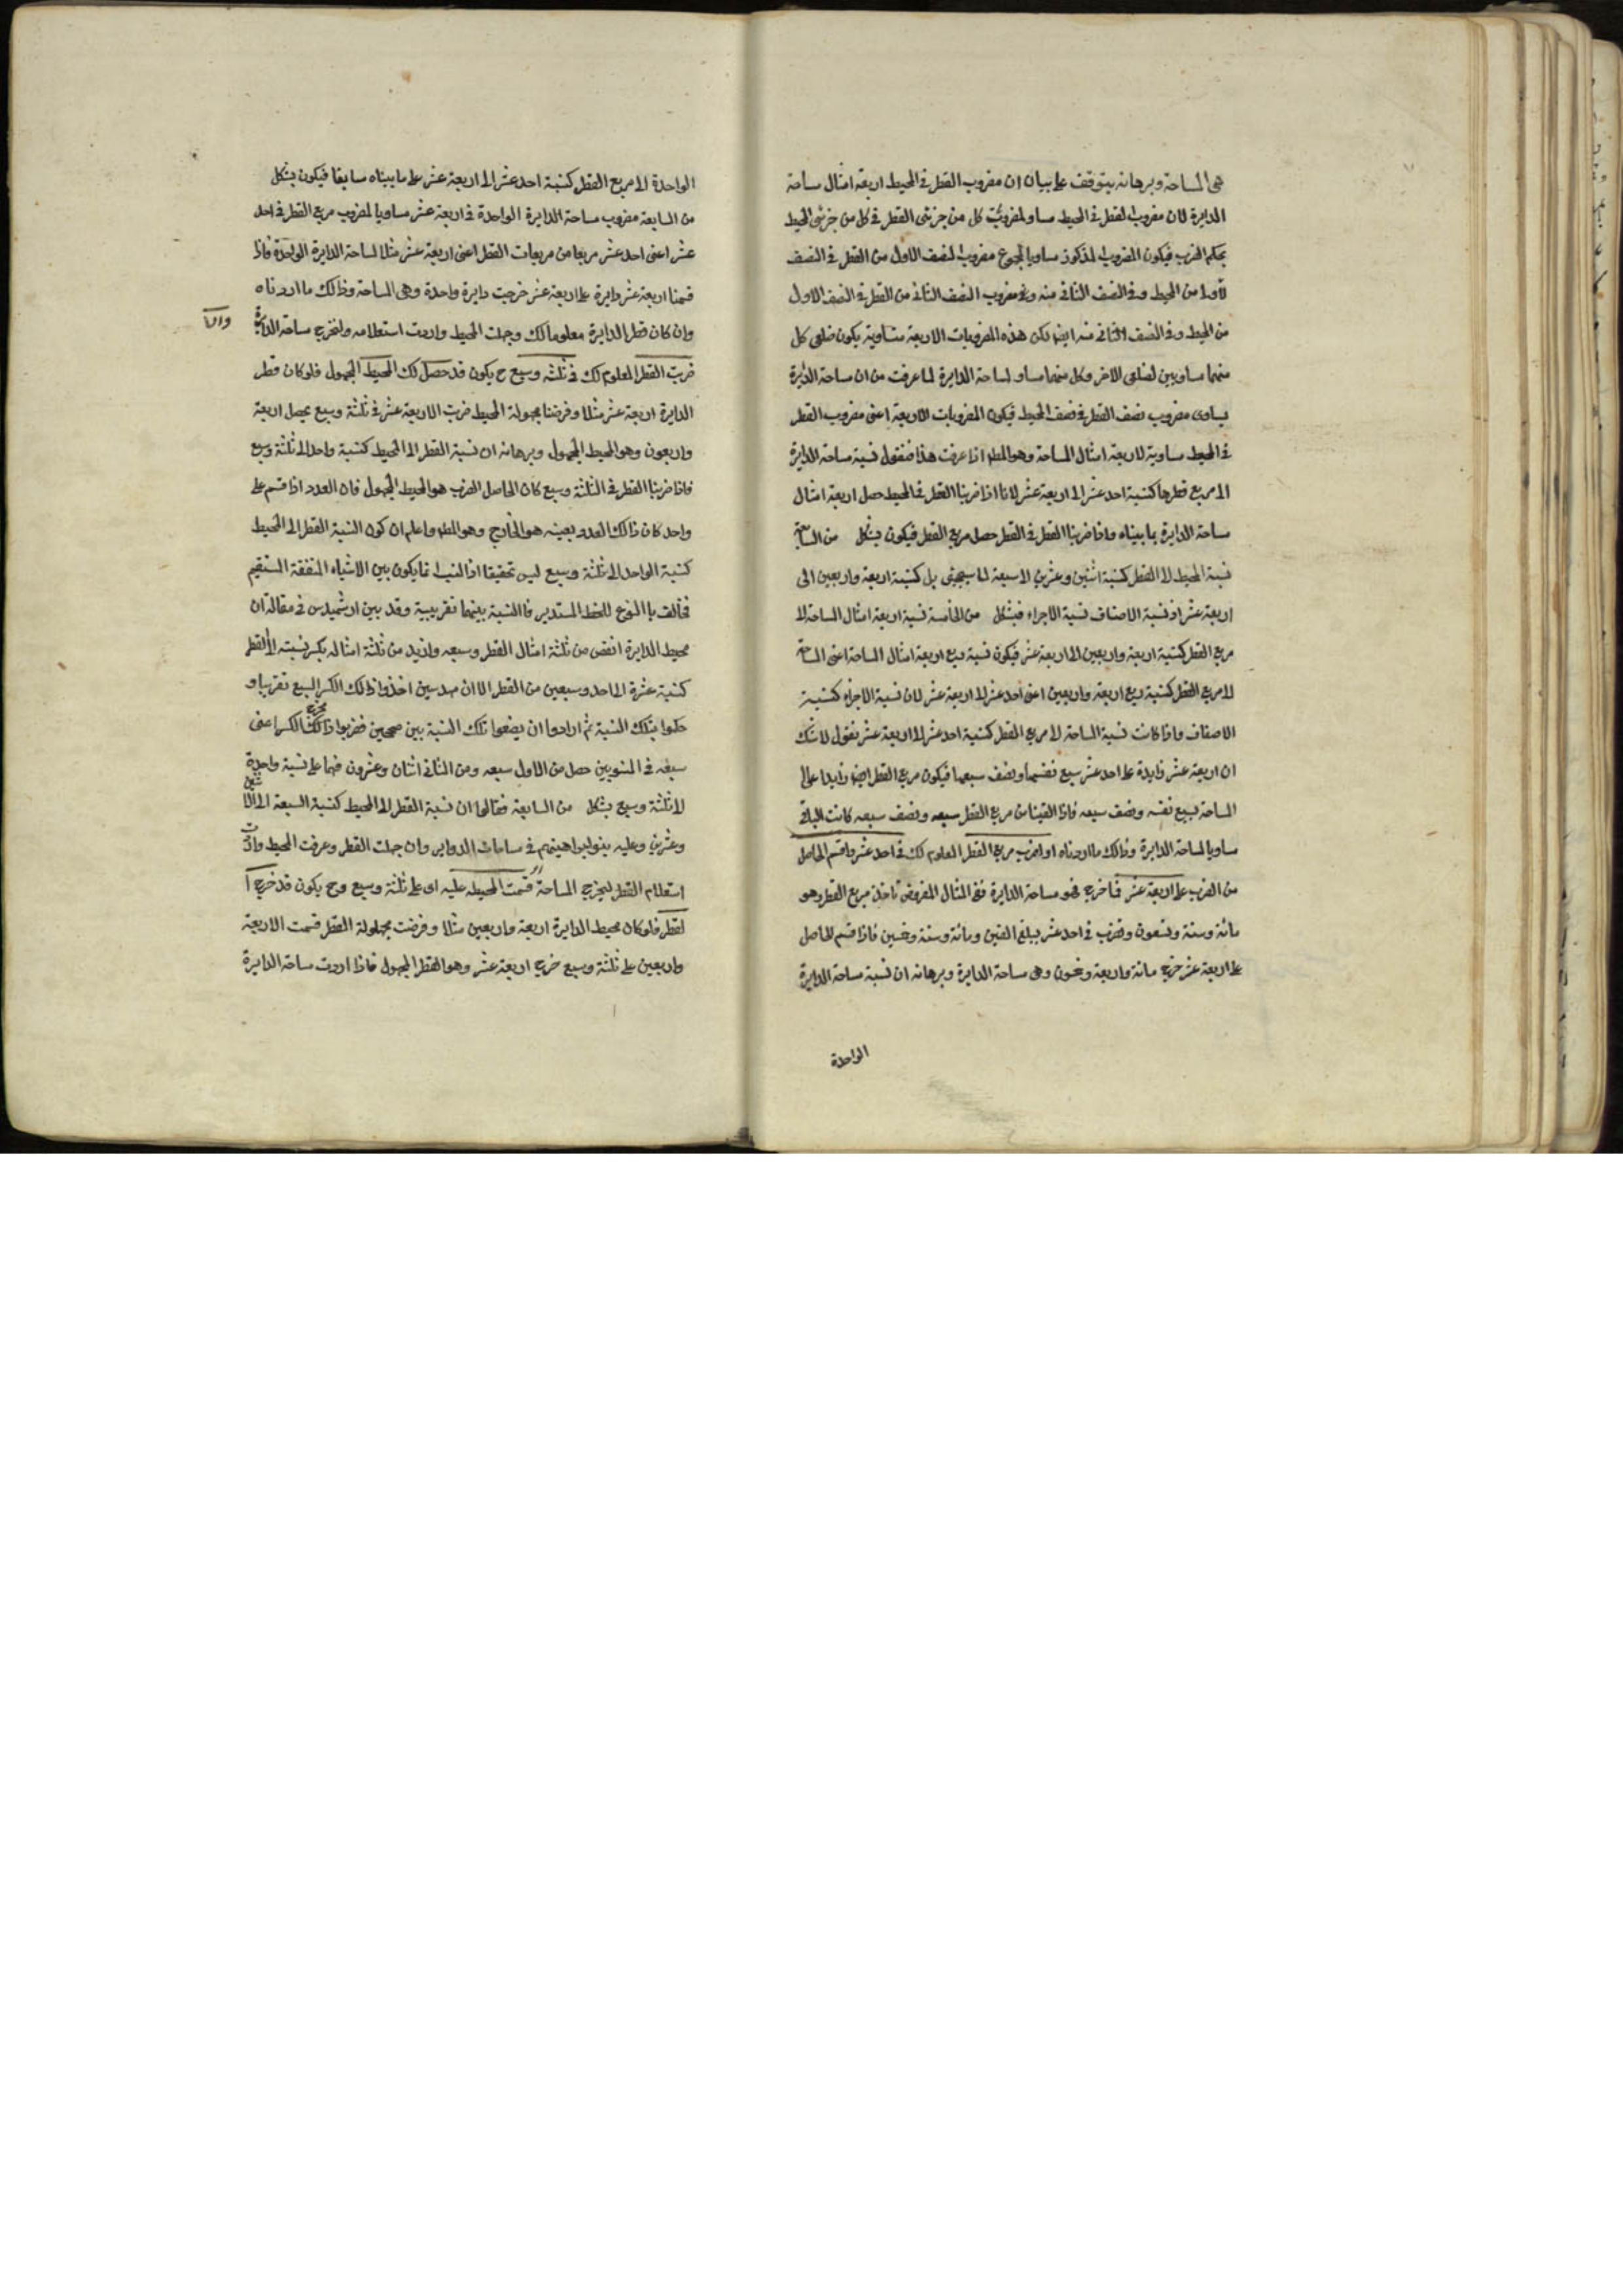 هى المساحة وبرهانه يتوقف على بيان ان مضروب القطر فى المحيط اربعة امثال ساحة
الدايرة لان مضروب القطر فى المحيط مساو لمضروب كل من جزئى القطر فى كل من جزئى المحيط
بحكم الضرب فيكون المضروب المذكور مساويا لمجموع مضروب النصف الاول من القطر فى النصف
الاول من المحيط وفى النصف الثانى منه وفى مضروب النصف الثانى من القطر فى النصف الاول
من المحيط وفى النصف الثانى منه ايضا لكن هذه المضروبات الاربعة متساوية يكون ضلعى كل
منهما مساويين لضلعى الاخر وكل منهما مساو لساحة الدايرة لما عرفت من ان ساحة الدايرة
يساوى مضروب نصف القطر فى نصف المحيط فيكون المضروبات الاربعة اعنى مضروب القطر
فى المحيط مساوية لاربعة امثال المساحة وهو المط اذا عرفت هذا فنقول نسبة ساحة الدايرة
الى مربع قطرها كنسبة احد عشر الى اربعة عشر لانا اذا ضربنا القطر فى المحيط حصل اربعة امثال
ساحة الدايرة بما بيناه واذا ضربنا القطر فى القطر حصل مربع القطر فيكون بشكل من السابعة
نسبة المحيط الى القطر كنسبة اثنين وعشرين الى سبعة لما سيجئى بل كنسبة اربعة واربعين الى
اربعة عشر اذ نسبة الاضعاف نسبة الاجزاء فبشكل من الخامسة نسبة اربعة امثال المساحة الى
مربع القطر كنسبة اربعة واربعين الى اربعة عشر فيكون نسبة ربع اربعة امثال المساحة اعنى المساحة
الى مربع القطر كنسبة ربع اربعة واربعين اعنى احد عشر الى اربعة عشر لان نسبة الاجزاء كنسبة
الاضعاف واذا كانت نسبة الساحة الى مربع القطر كنسبة احد عشر الى اربعة عشر نقول لا شك
ان اربعة عشر زايدة على احد عشر بسبع نفسها ونصف سبعها فيكون مربع القطر ايضا زايدا على
المساحة بسبع نفسه ونصف سبعه فاذا القينا من مربع القطر سبعه ونصف سبعه كانت الباقى
مساويا لمساحة الدايرة وذلك ما اردناه او اضرب مربع القطر المعلوم لك فى احد عشر واقسم الحاصل
من الضرب على اربعة عشر فما خرج فهو مساحة الدايرة ففى المثال المفروض تاخذ مربع القطر وهو
مائة وستة وتسعون وتضرب فى احد عشر يبلغ الفين ومائة وستة وخمسين فاذا قسم الحاصل
على اربعة عشر خرج مائة واربعة وخمسون وهى ساحة الدايرة وبرهانه ان نسبة ساحة الدايرة
الواحدة
الواحدة الى مربع القطر كنسبة احد عشر الى اربعة عشر على ما بيناه سابقا فيكون بشكل
من السابعة مضروب ساحة الدايرة الواحدة فى اربعة عشر مساويا لمضروب مربع القطر فى احد
عشر اعنى احد عشر مربعا من مربعات القطر اعنى اربعة عشر مثلا لساحة الدايرة الواحدة فاذا
قسمنا اربعة عشر دايرة على اربعة عشر خرجت دايرة واحدة وهى المساحة وذلك ما اردناه
وان كان قطر الدايرة معلوما لك وجهلت المحيط واردت استعلامه ولتخرج ساحة الدايرة
ضربت القطر المعلوم لك فى ثلثه وسبع ح يكون قد حصل لك المحيط المجهول فلو كان قطر
الدايرة اربعة عشر مثلا وفرضنا مجهولة المحيط ضربت الاربعة عشر فى ثلثة وسبع يحصل اربعة
واربعون وهو المحيط المجهول وبرهانه ان نسبة القطر الى المحيط كنسبة واحد الى ثلثة وسبع
فاذا ضربنا القطر فى الثلثة وسبع كان الحاصل الضرب هو المحيط المجهول فان العدد اذا قسم على
واحد كان ذلك العدد بعينه هو الخارج وهو المط واعلم ان كون النسبة القطر الى المحيط
كنسبة الواحد الى ثلثة وسبع ليس تحقيقا اذ النسب انما يكون بين الاشياء المتفقة المستقيم
مخالف باالنوع للخط المستدير فاالنسبة بينهما تقريبية وقد بين ارشميدس فى مقالة ان
محيط الدايرة انقص من ثلثة امثال القطر وسبعه وازيد من ثلثة امثاله بكسر نسبته الى القطر
كنسبة عشرة الى احد وسبعين من القطر الا ان مهدسين اخذوا ذلك الكسر السبع تقريبا و
حكموا بتلك النسبة ثم ارادوا ان يضعوا تلك النسبة بين صحيحين فضربوا ذلك مخرج الكسر اعنى
سبعة فى المنسوبين حصل من الاول سبعه ومن الثانى اثنان وعشرون فهما على نسبة واحدة
الى ثلثة وسبع بشكل من السابعة فقالوا ان نسبة القطر الى المحيط كنسبة السبعة الى اثنين
وعشرين وعليه بنوا براهينهم فى ساحات الدواير وان جهلت القطر وعرفت المحيط واردت
استعلام القطر ليخرج المساحة قسمت المحيط عليه اى على ثلثة وسبع وح يكون قد خرج ا
لقطر فلو كان محيط الدايرة اربعة واربعين مثلا وفرضت مجهولة القطر قسمت الاربعة
واربعين على ثلثة وسبع خرج اربعة عشر وهو القطر المجهول فاذا اردت ساحة الدايرة